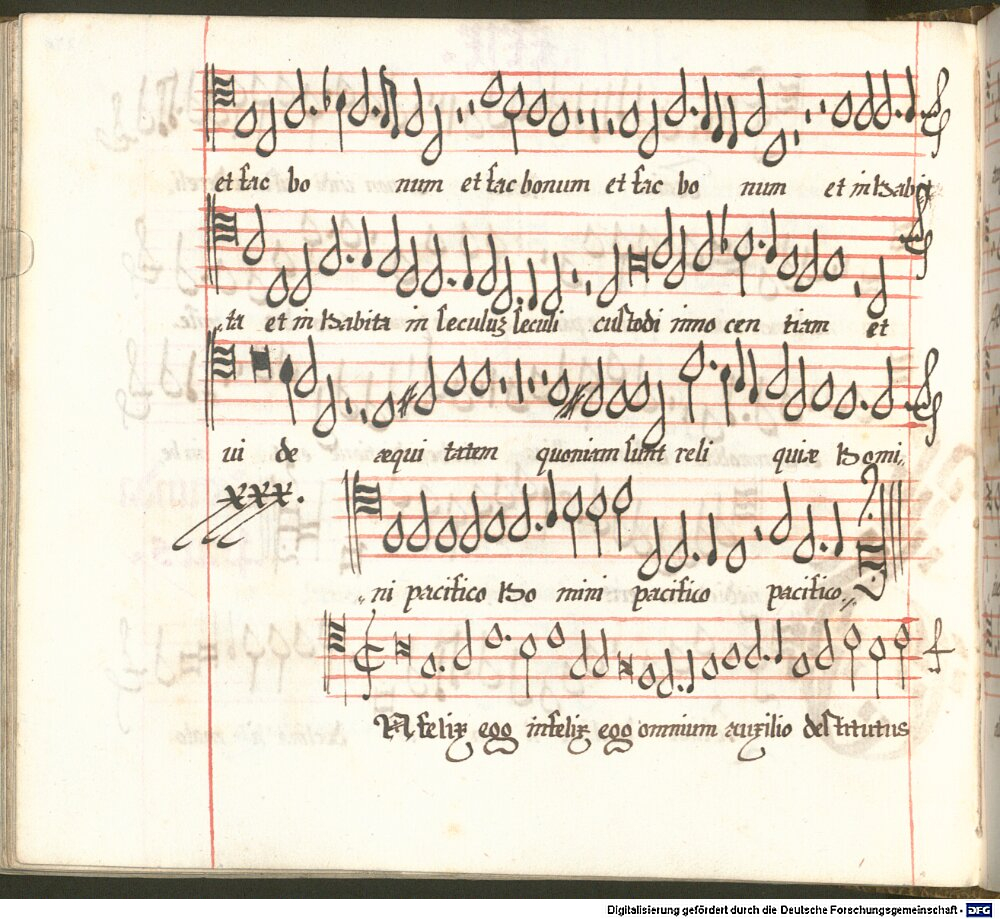 et fac bo num et fac bonum et fac bo num et inhabit
ta et in habita in seculuʒ seculi custodi inno cen tiam et
ui de æqui tatem quoniam sunt reli quiæ homi,,
xxx.
,,ni pacifico ho mini pacifico pacifico,,
felix ego infelix ego omnium auxilio destitutus
Digitalisierung gefördert durch die Deutsche Forschungsgemeinschaft - DFG